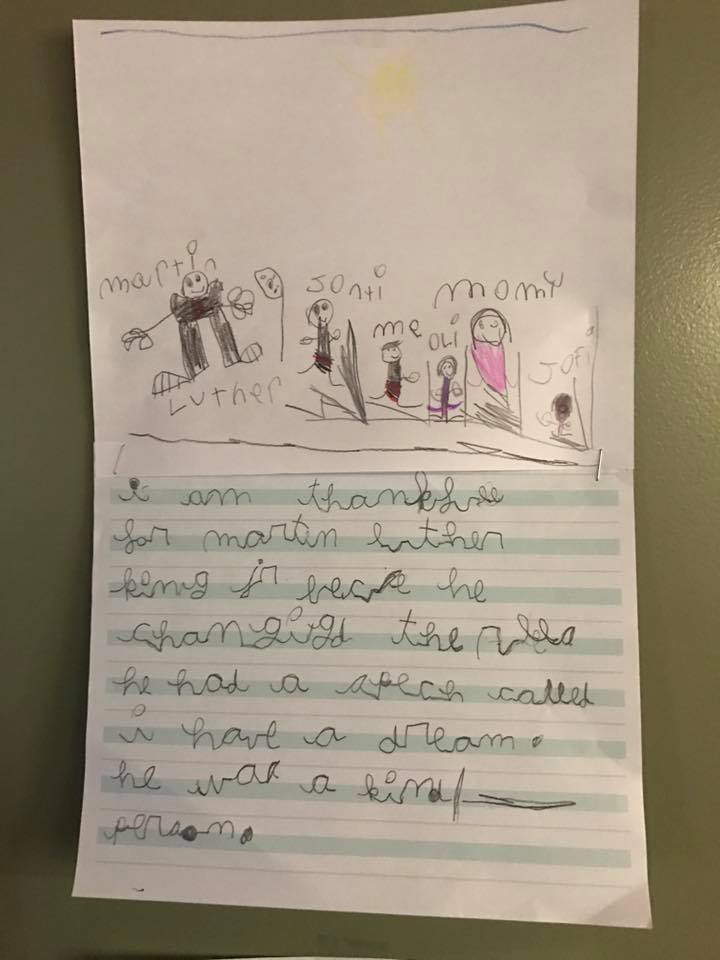 martin
Luther
Jonti
me
oli
momy
Jofi
i am thankful
for martin luther
king jr becase he
changigd the
he had a speach called
i have a dream.
he was a kind
person.